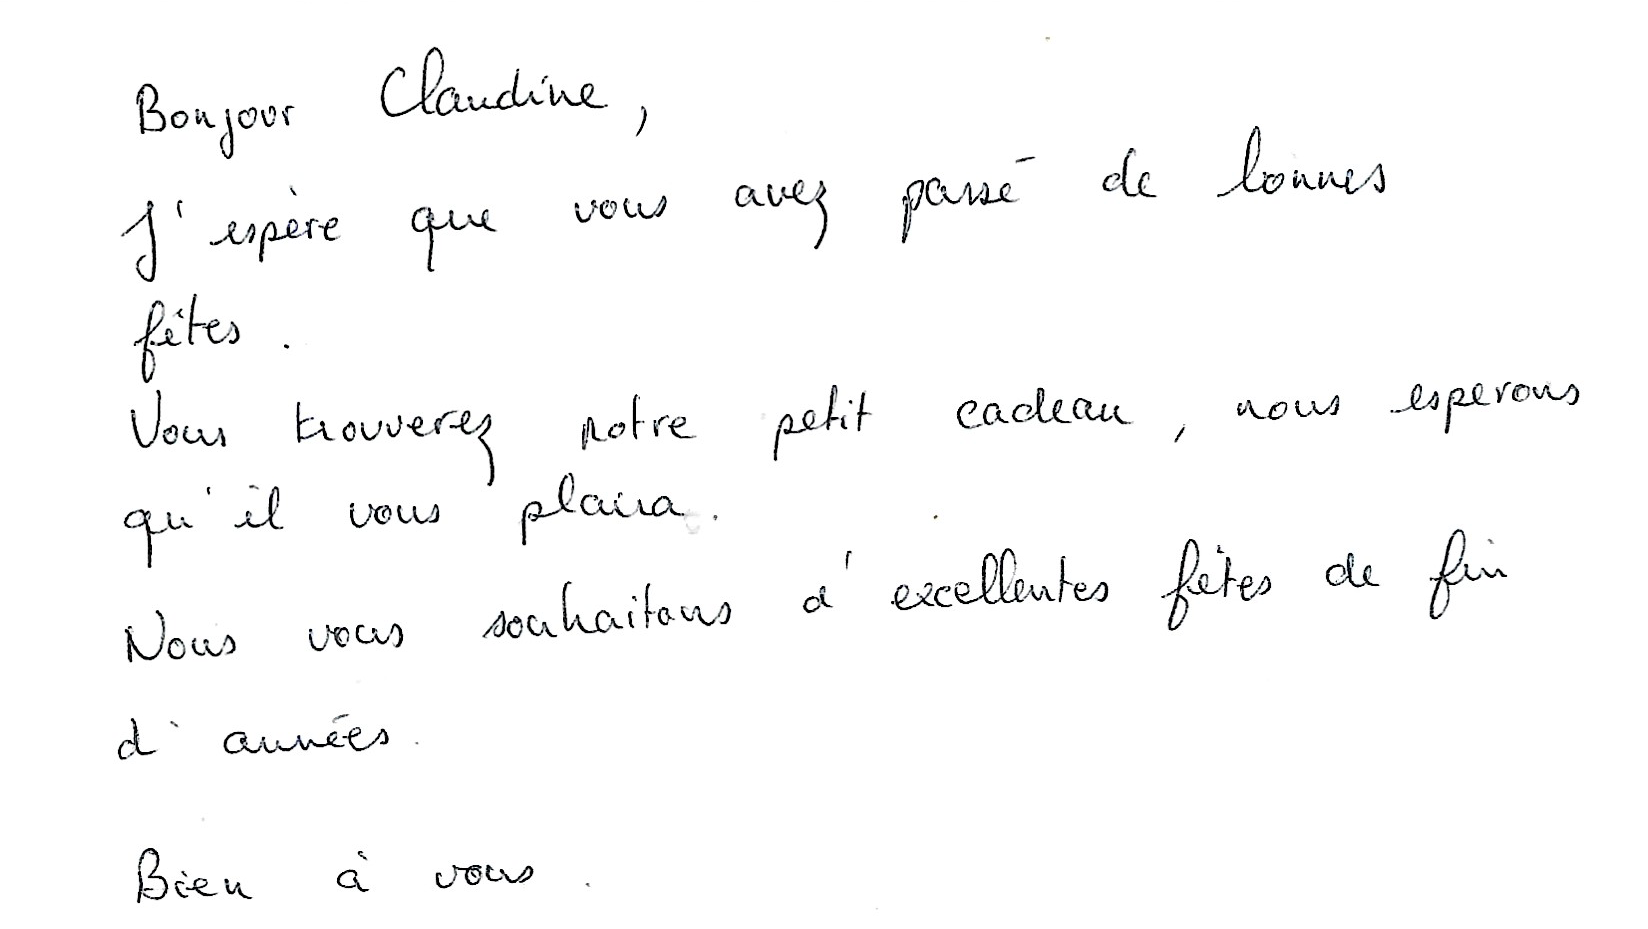 Bonjour Claudine,
J'espère que vous avez passé de bonnes
fêtes.
Vous trouverez notre petit cadeau, nous esperons
qu'il vous plaira.
Nous vous souhaitons d'excellentes fêtes de fin
d'années.
Bien à vous.